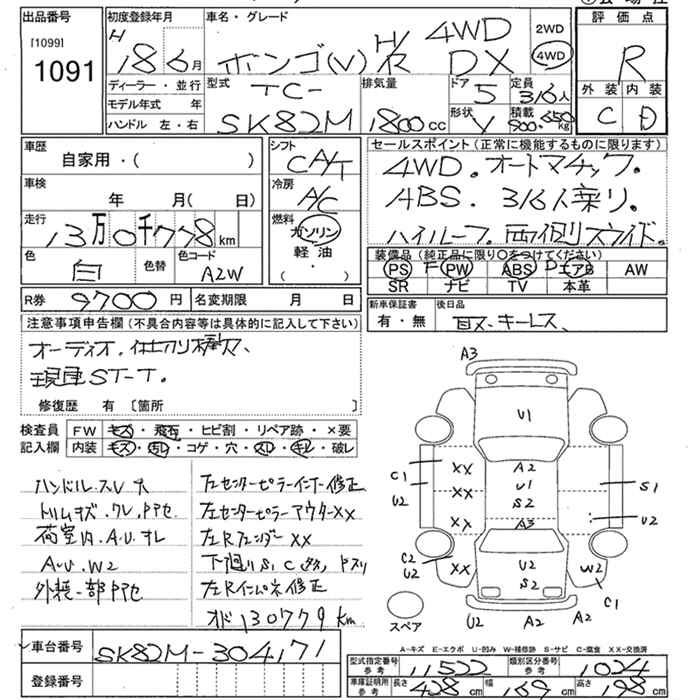 出品番号
[1099]
1091
初度登録年月
H 18 6月
車名・グレード
ホンゴ(V) H/R 4WD DX
2WD
4WD
評価点
R
外装 内装
C D
ディーラー・並行
モデル年式 年
ハンドル 左・右
型式
TC-
SK82M
排気量
1800cc
ドア
5
定員
3/6人
形状
V
積載
500.650kg
車歴
自家用・( )
車検
年 月( 日)
走行
13万0千778km
色
白
色替
色コード
A2W
シフト
CA/T
冷房
A/C
燃料
ガソリン
軽油
( ・ )
セールスポイント(正常に機能するものに限ります)
4WD.オートマチック.
ABS. 3/6人乗り.
ハイルーフ.両側スライド.
装備品(純正品に限り○をつけてください)
PS PW ABS エアB AW
SR ナビ TV 本革
R券 9700円 名変期限 月 日
新車保証書
有・無
後日品
取.キーレス、
注意事項申告欄(不具合内容等は具体的に記入して下さい)
オーディオ.仕切り棒欠.
現車ST-T.
修復歴 有 〔箇所 〕
検査員 FW キズ・飛石・ヒビ割・リペア跡・×要
記入欄 内装 キズ・汚レ・コゲ・穴・スレ・キレ・破レ
ハンドル.スレ 大
トリムキズ.ワレ.アセ
荷室内.A.U.オレ
A.U.W2
外装一部アセ
左センターピラーインナー修正
左センターピラーアウターXX
左Rフェンダー XX
下廻りS.C
左Rインパネ修正
オド130779km
A3
U1
A2
U1
S2
A3
U2
S2
C1
U2
XX
XX
XX
C2
U2
XX
S1
U2
W2
C1
U2 A2 A2
スペア
A-キズ E-エクボ U-凹み W-補修跡 S-サビ C-腐食 XX-交換済
車台番号 SK82M-304171
登録番号
型式指定番号 参考 11522
類別区分番号 参考 1024
車庫証明用 参考 長さ 428cm 幅 169cm 高さ 198cm